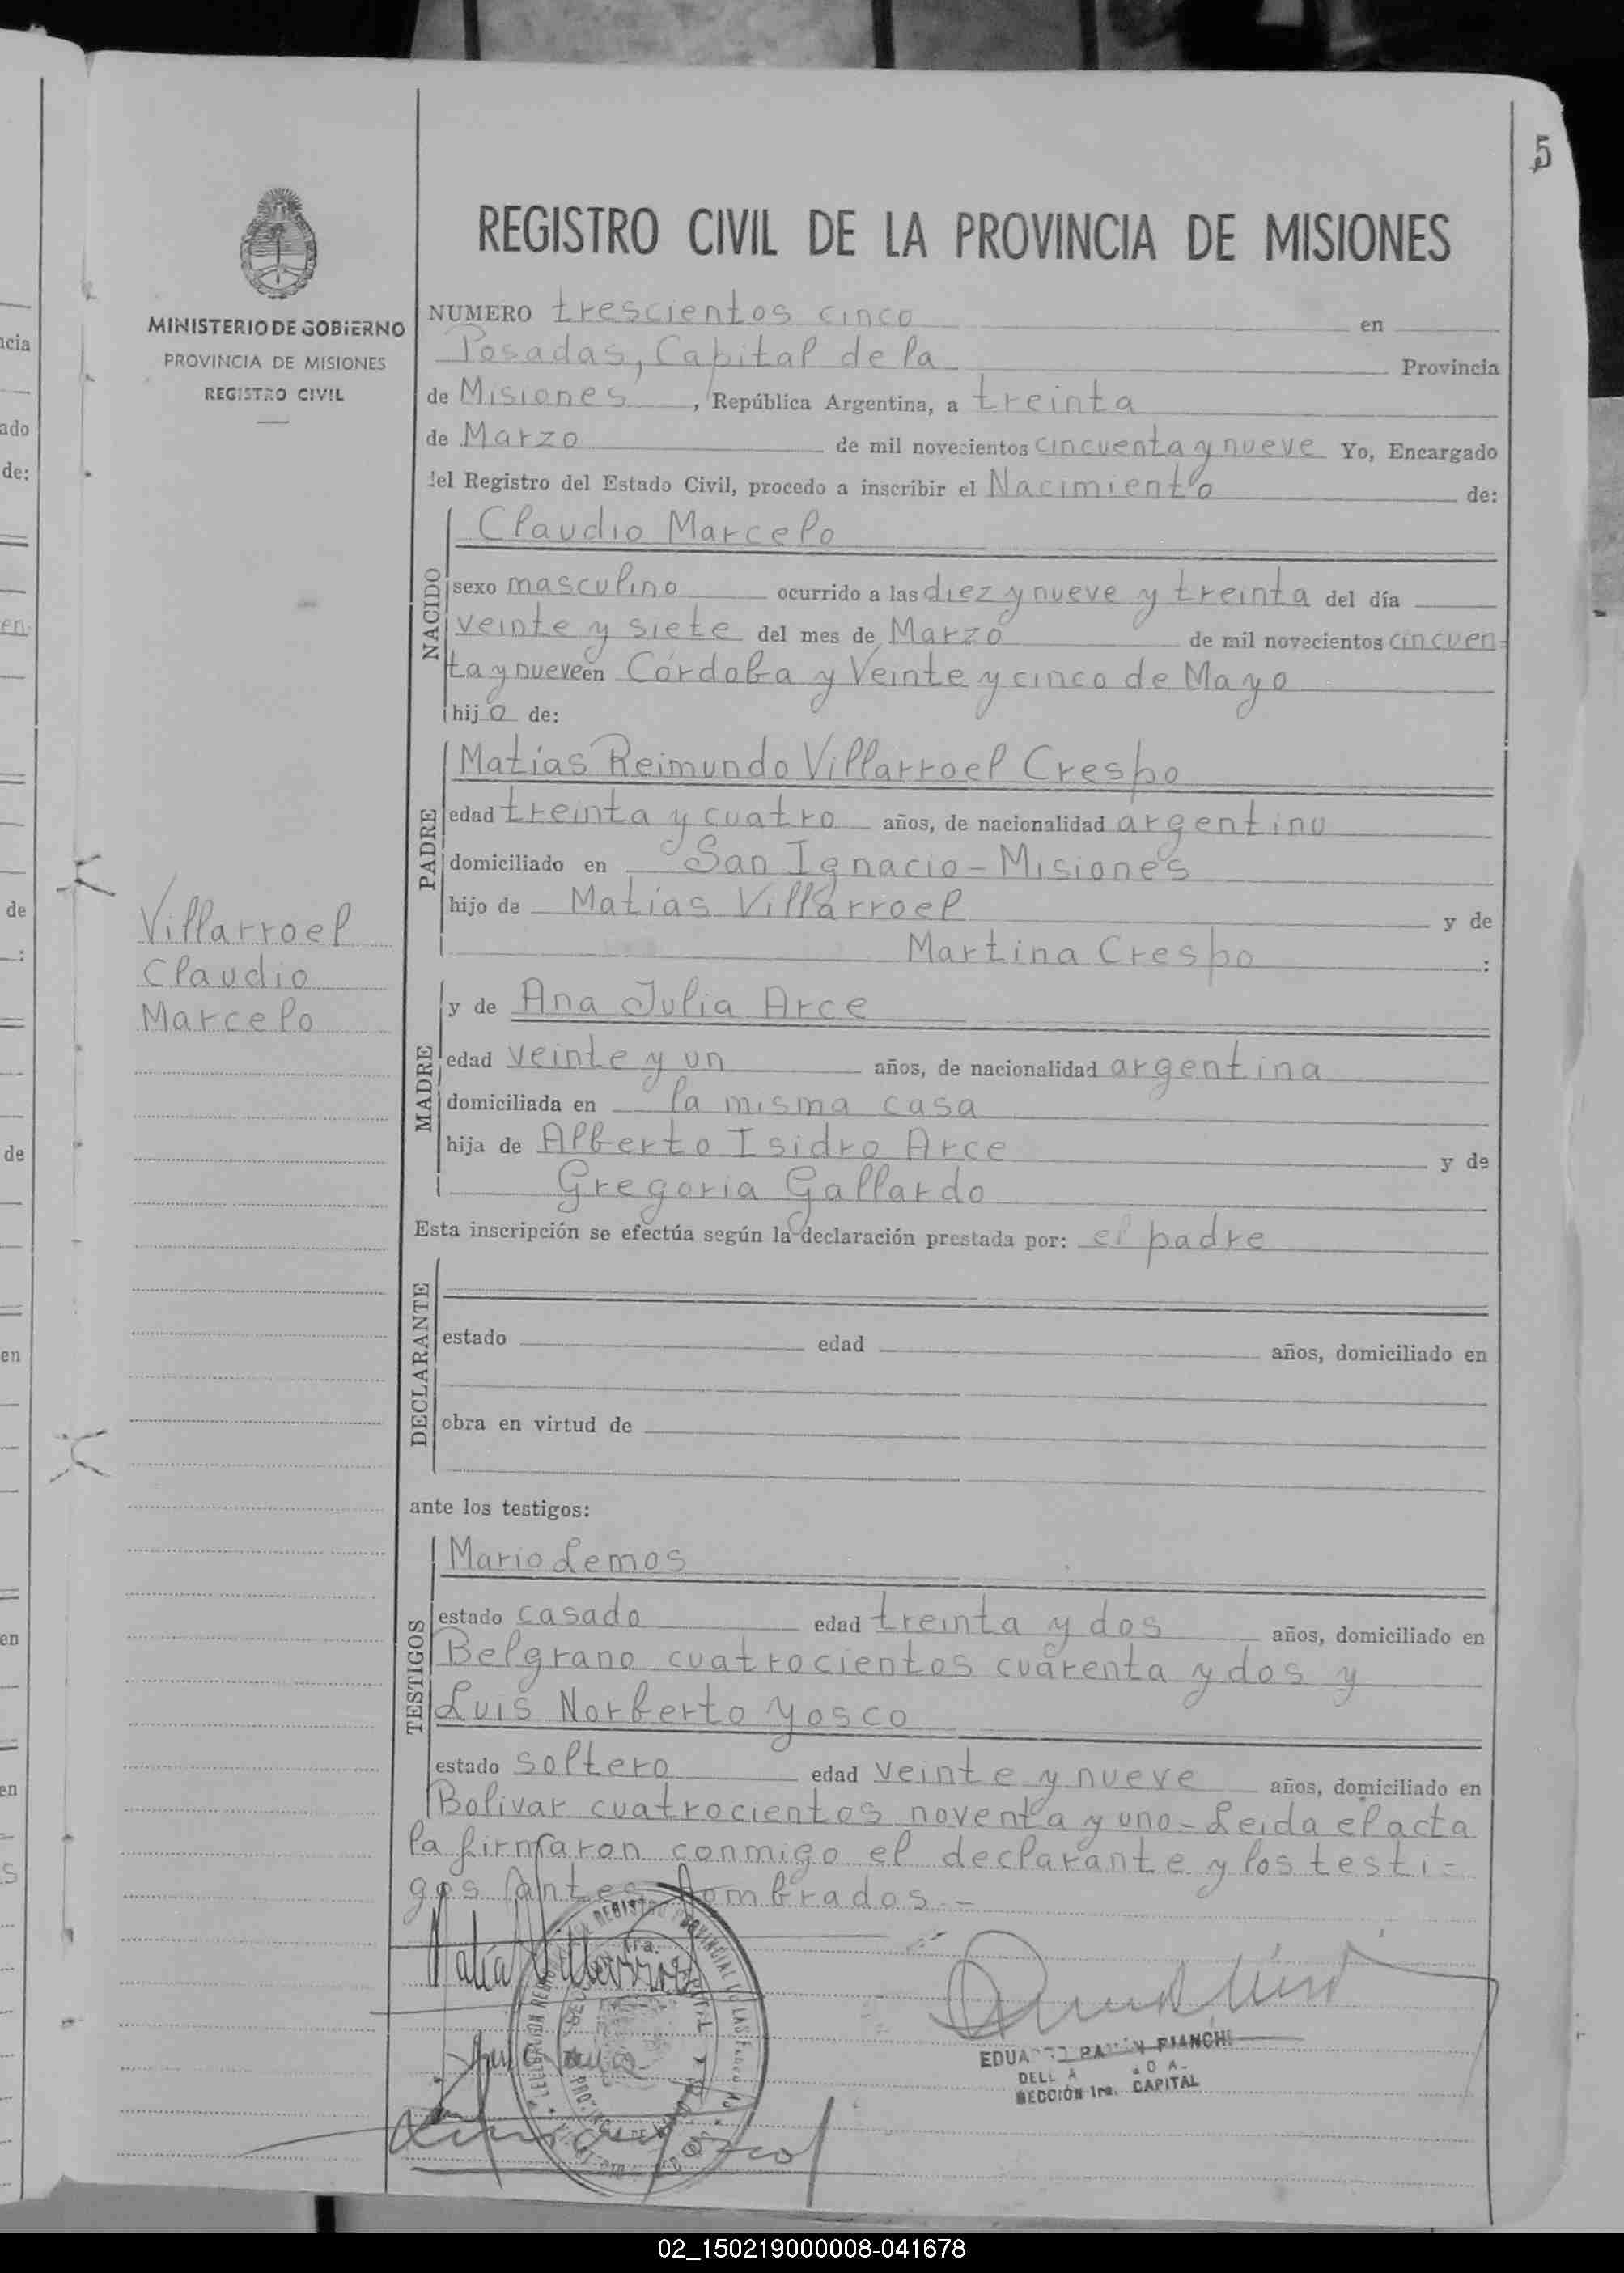 5
REGISTRO CIVIL DE LA PROVINCIA DE MISIONES
MINISTERIO DE GOBIERNO
PROVINCIA DE MISIONES
REGISTRO CIVIL
NUMERO trescientos cinco en
Posadas, Capital de la Provincia
de Misiones, República Argentina, a treinta
de Marzo de mil novecientos cincuenta y nueve Yo, Encargado
del Registro del Estado Civil, procedo a inscribir el Nacimiento de:
NACIDO
Claudio Marcelo
sexo masculino ocurrido a las diez y nueve y treinta del día
veinte y siete del mes de Marzo de mil novecientos cincuen=
ta y nueve en Córdoba y Veinte y cinco de Mayo
hijo de:
PADRE
Matías Reimundo Villarroel Crespo
edad treinta y cuatro años, de nacionalidad argentino
domiciliado en San Ignacio - Misiones
hijo de Matías Villarroel y de
Martina Crespo :
Villarroel
Claudio
Marcelo
MADRE
y de Ana Julia Arce
edad veinte y un años, de nacionalidad argentina
domiciliada en la misma casa
hija de Alberto Isidro Arce y de
Gregoria Gallardo
Esta inscripción se efectúa según la declaración prestada por: el padre
DECLARANTE
estado edad años, domiciliado en
obra en virtud de
ante los testigos:
TESTIGOS
Mario Lemos
estado casado edad treinta y dos años, domiciliado en
Belgrano cuatrocientos cuarenta y dos y
Luis Norberto Yosco
estado soltero edad veinte y nueve años, domiciliado en
Bolivar cuatrocientos noventa y uno - Leida el acta
la firmaron conmigo el declarante y los testi=
gos antes nombrados. -
Matías Villarroel
EDUARDO RAMÓN PIANCHI
SECCIÓN 1ra. CAPITAL
02_150219000008-041678